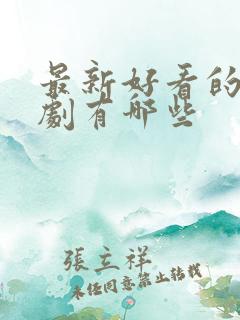 最新好看的
劇有哪些
張立祥
未经同意禁止转载